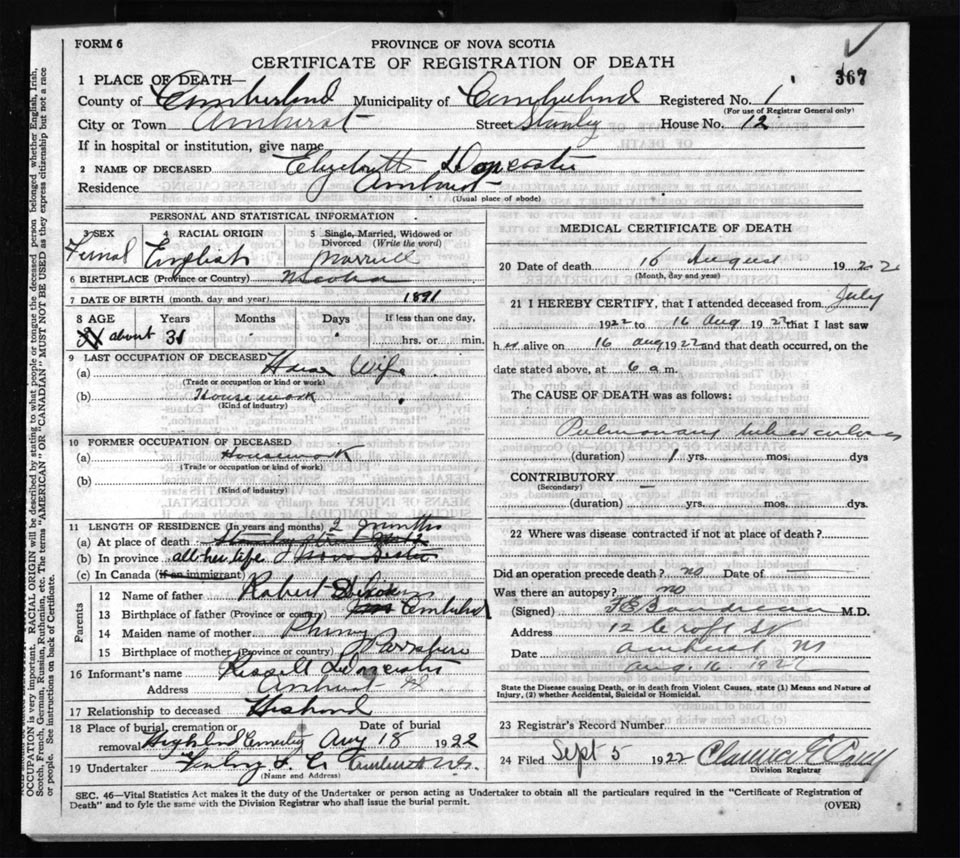 FORM 6
PROVINCE OF NOVA SCOTIA
CERTIFICATE OF REGISTRATION OF DEATH
367
1 PLACE OF DEATH—
County of Cumberland Municipality of Cumberland Registered No. 1
(For use of Registrar General only)
City or Town Amherst Street Stanley House No. 12
If in hospital or institution, give name
2 NAME OF DECEASED Elizabeth Doncaster
Residence Amherst
(Usual place of abode)
PERSONAL AND STATISTICAL INFORMATION
3 SEX 4 RACIAL ORIGIN 5 Single, Married, Widowed or Divorced (Write the word)
Femal English Married
6 BIRTHPLACE (Province or Country) N Scotia
7 DATE OF BIRTH (month, day and year) 1891
8 AGE Years Months Days If less than one day,
about 31 hrs. or min.
9 LAST OCCUPATION OF DECEASED
(a) House Wife
(Trade or occupation or kind or work)
(b) Housework
(Kind of industry)
10 FORMER OCCUPATION OF DECEASED
(a) Housework
(Trade or occupation or kind or work)
(b)
(Kind of industry)
11 LENGTH OF RESIDENCE (In years and months) 2 months
(a) At place of death
(b) In province all her life
(c) In Canada (if an immigrant)
Parents
12 Name of father Robert
13 Birthplace of father (Province or country)
14 Maiden name of mother
15 Birthplace of mother (Province or country) Parrsboro
16 Informant's name Russell Doncaster
Address Amherst
17 Relationship to deceased Husband
18 Place of burial, cremation or removal Highland Cemetery Date of burial Aug 18 1922
19 Undertaker Amherst N.S.
(Name and Address)
MEDICAL CERTIFICATE OF DEATH
20 Date of death 16 August 1922
(Month, day and year)
21 I HEREBY CERTIFY, that I attended deceased from July
1922 to 16 Aug 1922 that I last saw
her alive on 16 aug 1922 and that death occurred, on the
date stated above, at 6 a.m.
The CAUSE OF DEATH was as follows:
Pulmonary tuberculosis
(duration) 1 yrs. mos. dys
CONTRIBUTORY —
(Secondary)
(duration) yrs. mos. dys.
22 Where was disease contracted if not at place of death?
Did an operation precede death? no Date of
Was there an autopsy? no
(Signed) M.D.
Address 12 Croft St
Amherst NS
Date Aug. 16 1922
State the Disease causing Death, or in death from Violent Causes, state (1) Means and Nature of
Injury, (2) whether Accidental, Suicidal or Homicidal.
23 Registrar's Record Number
24 Filed Sept 5 1922 Clarence E
Division Registrar
SEC. 46—Vital Statistics Act makes it the duty of the Undertaker or person acting as Undertaker to obtain all the particulars required in the "Certificate of Registration of
Death" and to fyle the same with the Division Registrar who shall issue the burial permit.
(OVER)
OCCUPATION is very important. RACIAL ORIGIN will be described by stating to what people or tongue the deceased person belonged whether English, Irish,
Scotch, French, German, Russian, Ruthenian, etc. The terms "AMERICAN" OR "CANADIAN" MUST NOT BE USED as they express citizenship but not a race
or people. See instructions on back of Certificate.